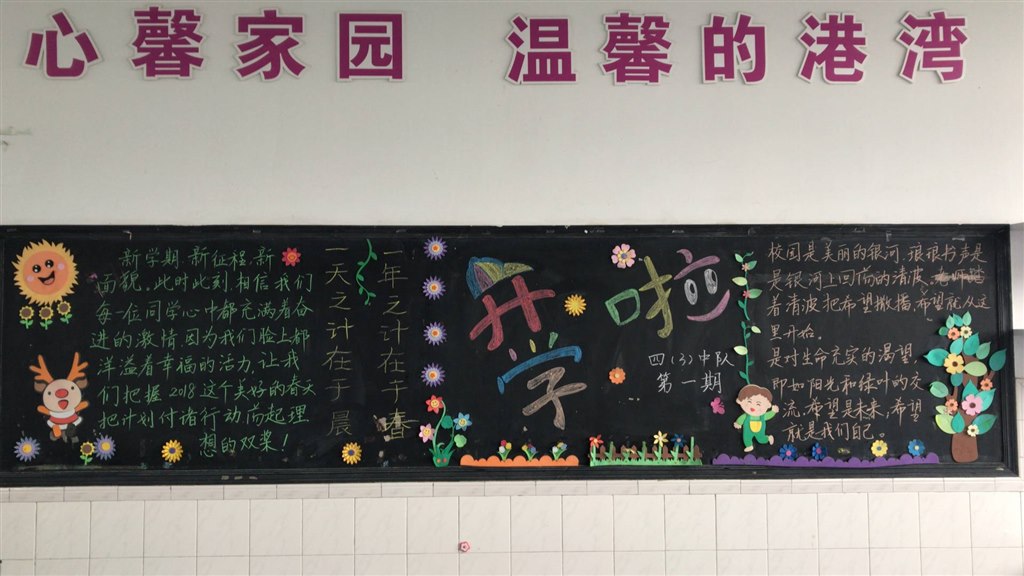 心馨家园 温馨的港湾
新学期 新征程 新
面貌。此时此刻 相信我们
每一位同学心中都充满着奋
进的激情 因为我们脸上都
洋溢着幸福的活力,让我
们把握2018这个美好的春天
把计划付诸行动,荡起理
想的双桨!
一年之计在于春
一天之计在于晨
开学啦
四(3)中队
第一期
校园是美丽的银河,琅琅书声是
是银河上回荡的清波,
着清波把希望撒播,希望就从这
里开始。
是对生命充实的渴望
即如阳光和绿叶的交
流,希望是未来,希望
就是我们自己